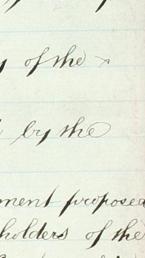 of the
by the
ment proposed
holders of the